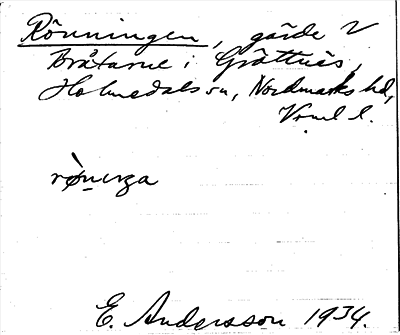 Rönningen, gärde V
Bråtarne i Gråttnäs,
Holmedals sn, Nordmarks hd,
Vrml l.
E. Andersson 1934.